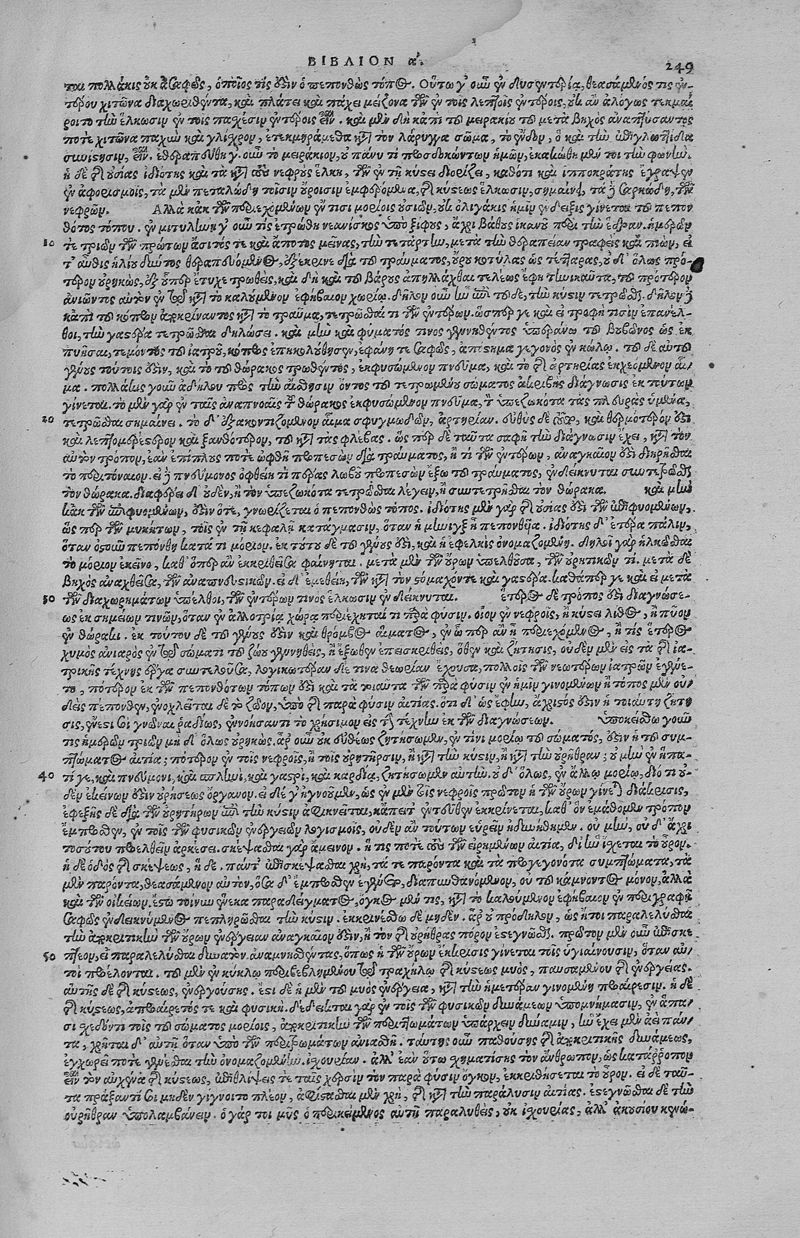 ΒΙΒΛΙΟΝ α. 249
που πολλάκις οὐκ ἀσαφῶς, ὁποῖός τίς ἐστιν ὁ πεπονθὼς τόπος. Οὕτω γ' οὖν ἐν δυσεντερίᾳ, θεασάμενός τις ἐν-
τέρου χιτῶνα διαχωρηθέντα, καὶ πλάτει καὶ πάχει μείζονα τῶν ἐν τοῖς λεπτοῖς ἐντέροις, οὐκ ἂν ἀλόγως τεκμαί
ροιτο τὴν ἕλκωσιν ἐν τοῖς παχέσιν ἐντέροις εἶναι. καὶ μὲν δὴ κἀπὶ τοῦ μειρακίου τοῦ μετὰ βηχὸς ἀναπτύσαντος
ποτὲ χιτῶνα παχὺν καὶ γλίσχρον, ἐτεκμηράμεθα κατὰ τὸν λάρυγγα σῶμα, τὸ ἔνδον, ὃ καὶ τὴν ἐπιγλωττίδα
συνίστησιν, εἶναι. ἐθεραπεύθη γ' οὖν τὸ μειράκιον, οὐ πάνυ τι προσδοκώντων ἡμῶν, ἐκακώθη μέν τοι τὴν φωνήν.
ἡ δὲ τῆς οὐσίας ἰδιότης καὶ τὰ κατὰ τοὺς νεφροὺς ἕλκη, τῶν ἐν τῇ κύστει διορίζει, καθότι καὶ ἱπποκράτης ἔγραψεν
ἐν ἀφορισμοῖς, τὰ μὲν πεταλώδη τοῖσιν οὔροισιν ἐμφερόμενα, τῆς κύστεως ἕλκωσιν, σημαίνειν, τὰ δὲ σαρκώδη, τῶν
νεφρῶν. Ἀλλὰ κἀκ τῶν περιεχομένων ἔν τισι μορίοις οὐσιῶν, οὐκ ὀλιγάκις ἡμῖν ἔνδειξις γίνεται τοῦ πεπον
θότος τόπου. ἐν μιτυλήνῃ γ' οὖν τις ἐτρώθη νεανίσκος ὑπὸ ξίφους, ἄχρι βάθους ἱκανοῦ περὶ τὴν ἕδραν. ἡμερῶν
10 τε τριῶν τῶν πρώτων ἄσιτός τε καὶ ἄποτος μείνας, τῇ τετάρτῃ, μετὰ τὴν θεραπείαν τραφεὶς καὶ πιὼν, εἶ
τ' αὖθις ἡλίου δύνοντος θεραπευόμενος, ἐξέκρινε διὰ τοῦ τραύματος, οὔρου κοτύλας ὡς τέτταρας, οὐδ' ὅλως πρό-
τερον οὐρηκὼς, ἐξ οὗπερ ἔτυχε τρωθεὶς, καὶ δὴ καὶ τοῦ βάρους ἀπηλλάχθαι τελέως ἔφη τηνικαῦτα, τοῦ πρότερον
ἀνιῶντος αὐτὸν ἐν τῷ κατὰ τὸ καλούμενον ἐφήβαιον χωρίῳ. δῆλον οὖν ἦν ἐπὶ τοῦδε, τὴν κύστιν τετρῶσθαι. δῆλον δὲ
κἀπὶ τοῦ κόπρον ἐκκρίναντος κατὰ τὸ τραῦμα, τετρῶσθαί τι τῶν ἐντέρων. ὥσπερ γε καὶ εἰ τροφή τισιν ἐπανέλ-
θοι, τὴν γαστέρα τετρῶσθαι δηλώσει. καὶ μὴν καὶ φύματός τινος γεννηθέντος ὑπεράνω τοῦ βουβῶνος ὡς ἐκ
πυῆσαι, τεμόντος τοῦ ἰατροῦ, κόπρος ἐπηκολούθησεν, ἐφάνη τε σαφῶς, ἀπόστημα γεγονὸς ἐν κώλῳ. τοῦ δὲ αὐτοῦ
γένους τούτοις ἐστὶν, καὶ τὸ τοῦ θώρακος τρωθέντος, ἐκφυσώμενον πνεῦμα, καὶ τὸ τῆς ἀρτηρίας ἐκχεόμενον αἷ-
μα. πολλάκις γοῦν ἀδήλου πρὸς τὴν αἴσθησιν ὄντος τοῦ τετρωμένου σώματος ἀκριβὴς διάγνωσις ἐκ τούτων
γίνεται. τὸ μὲν γὰρ ἐν ταῖς ἀναπνοαῖς τοῦ θώρακος ἐκφυσώμενον πνεῦμα, τὸν ὑπεζωκότα τὰς πλευρὰς ὑμένα,
20 τετρῶσθαι σημαίνει. τὸ δ' ἐξακοντιζόμενον αἷμα σφυγμωδῶς, ἀρτηρίαν. εὐθὺς δὲ καὶ θερμότερόν ἐστι
καὶ λεπτομερέστερον καὶ ξανθότερον, τοῦ κατὰ τὰς φλέβας. ὥσπερ δὲ ταῦτα σαφῆ τὴν διάγνωσιν ἔχει, κατὰ τὸν
αὐτὸν τρόπον, ἐὰν ἐπίπλους ποτὲ ὠφθῇ προπεσὼν διὰ τραύματος, ἤ τι τῶν ἐντέρων, ἀναγκαῖόν ἐστι διῃρῆσθαι
τὸ περιτόναιον. εἰ δὲ πνεύμονος ὀφθείη τὸ πέρας λοβοῦ προπεσὼν ἔξω τοῦ τραύματος, ἐνδείκνυται συντετρῶσθαι
τὸν θώρακα. διαφέρει δ' οὐδὲν, ἢ τὸν ὑπεζωκότα τετρῶσθαι λέγειν, ἢ συντετρῆσθαι τὸν θώρακα. καὶ μὴν
κἀκ τῶν ἐπιφυομένων, ἔστιν ὅτε, γνωρίζεται ὁ πεπονθὼς τόπος. ἰδιότης μὲν γὰρ τῆς οὐσίας ἐστὶ τῶν ἐπιφυομένων,
ὥσπερ τῶν μυκήτων, τοῖς ἐν τῇ κεφαλῇ κατάγμασιν, ὅταν ἡ μῆνιγξ ᾖ πεπονθυῖα. ἰδιότης δ' ἑτέρα πάλιν,
ὅταν ὀστοῦν πεπόνθῃ κατά τι μόριον. ἐκ τούτου δὲ τοῦ γένους ἐστὶ, καὶ ἡ ἐφελκὶς ὀνομαζομένη. δηλοῖ γὰρ ἡλκῶσθαι
τὸ μόριον ἐκεῖνο, καθ' ὅπερ ἂν ἐκκριθεῖσα φαίνηται. μετὰ μὲν τῶν οὔρων ὑπελθοῦσα, τῶν οὐρητικῶν τι. μετὰ δὲ
βηχὸς ἀναχθεῖσα, τῶν ἀναπνευστικῶν. εἰ δ' ἐμεθείη, τῶν κατὰ τὸν στόμαχόν τε καὶ γαστέρα. καθάπερ γε καὶ εἰ μετὰ
30 τῶν διαχωρημάτων ὑπέλθοι, τῶν ἐντέρων τινὸς ἕλκωσιν ἐνδείκνυται. ἕτερος δὲ τρόπος ἐστὶ διαγνώσε-
ως ἐκ σημείων τινῶν, ὅταν ἐν ἀλλοτρίᾳ χώρᾳ περιέχηταί τι παρὰ φύσιν. οἷον ἐν νεφροῖς, ἢ κύστει λίθος, ἢ πῦον
ἐν θώρακι. ἐκ τούτου δὲ τοῦ γένους ἐστὶν καὶ θρόμβος αἵματος, ἐν ᾧ περ ἂν ᾖ περιεχόμενος, ἤ τις ἕτερος
χυμὸς ἀνιαρὸς ἐν τῷ σώματι τοῦ ζώου γεννηθεὶς, ἢ ἔξωθεν ἐπεισκριθεὶς, ὅθεν καὶ ζήτησις, οὐδὲν μὲν εἰς τὰ τῆς ἰα-
τρικῆς τέχνης ἔργα συντελοῦσα, λογικωτέραν δέ τινα θεωρίαν ἔχουσα, πολλοῖς τῶν νεωτέρων ἰατρῶν ἐγένε-
το, πότερον ἐκ τῶν πεπονθότων τόπων ἐστὶ καὶ τὰ τοιαῦτα τῶν παρὰ φύσιν ἐν ἡμῖν γινομένων ἢ τόπος μὲν οὐ-
δεὶς πεπονθὼς, ἐνοχλεῖται δὲ τὸ ζῶον, ὑπὸ τῆς παρὰ φύσιν αἰτίας. ὅτι δ' ὡς ἔφην, ἄχρηστός ἐστιν ἡ τοιαύτη ζήτη
σις, ἔνεστί σοι γνῶναι ῥᾳδίως, ἐννοήσαντι τὸ χρήσιμον εἰς τὴν τέχνην ἐκ τῶν διαγνώσεων. Ὑποκείσθω γοῦν
τις ἡμερῶν τριῶν μηδ' ὅλως οὐρηκώς. ἆρ' οὖν οὐκ εὐθέως ζητήσομεν, ἐν τίνι μορίῳ τοῦ σώματος, ἐστὶν ἡ τοῦ συμ-
πτώματος αἰτία; πότερον ἐν τοῖς νεφροῖς, ἢ τοῖς οὐρητῆρσιν, ἢ κατὰ τὴν κύστιν, ἢ κατὰ τὴν οὐρήθραν; οὐ μὴν ἐν ἥπα-
40 τί γε, καὶ πνεύμονι, καὶ σπληνὶ, καὶ γαστρὶ, καὶ καρδίᾳ, ζητήσομεν αὐτήν. οὐδ' ὅλως, ἐν ἄλλῳ μορίῳ, διότι οὐ-
δὲν ἐκείνων ἐστὶν οὐρήσεως ὄργανον. εἰ δέ γ' ἠγνοοῦμεν, ὡς ἐν μὲν τοῖς νεφροῖς πρῶτον ἡ τῶν οὔρων γίνεται διάκρισις,
ἐφεξῆς δὲ διὰ τῶν οὐρητήρων ἐπὶ τὴν κύστιν ἀφικνεῖται, κἄπειτ' ἐντεῦθεν ἐκκρίνεται, καθ' ὃν ἐμάθομεν τρόπον
ἔμπροσθεν, ἐν τοῖς τῶν φυσικῶν ἐνεργειῶν λογισμοῖς, οὐδὲν ἂν τούτων εὑρεῖν ἠδυνήθημεν. οὐ μὴν, οὐδ' ἄχρι
τοσούτου προελθεῖν ἀρκέσει. σκέψασθαι γὰρ ἄμεινον. ἥ τίς ποτε τῶν εἰρημένων αἰτία, δι' ἣν ἴσχεται τὸ οὖρον.
ἡ δὲ ὁδὸς τῆς σκέψεως, ἥδε. πάντ' ἐπισκέψασθαι χρὴ, τά τε παρόντα καὶ τὰ προγεγονότα συμπτώματα, τὰ
μὲν παρόντα, θεασάμενον αὐτὸν, ὅσα δ' ἔμπροσθεν ἐγένετο, διαπυνθανόμενον, οὐ τοῦ κάμνοντος μόνου, ἀλλὰ
καὶ τῶν οἰκείων. ἔστω τοίνυν ἕνεκα παραδείγματος, ὄγκος μέν τις, κατὰ τὸ καλούμενον ἐφήβαιον ἐν περιγραφῇ
σαφῶς ἐνδεικνύμενος πεπληρῶσθαι τὴν κύστιν. ἐκκρινέσθω δὲ μηδέν. ἆρ' οὐ πρόδηλον, ὡς ἤτοι παραλελύσθαι
τὴν ἐκκριτικὴν τῶν οὔρων ἐνέργειαν ἀναγκαῖόν ἐστιν, ἢ τὸν τῆς οὐρήθρας πόρον ἐστεγνῶσθαι. πρῶτον μὲν οὖν ἐπισκε
50 πτέον, εἰ παραλελύσθαι δυνατὸν. ἀναμνησθέντας, ὅπως ἡ τῶν οὔρων ἔκκρισις γίνεται τοῖς ὑγιαίνουσιν, ὅταν αὐ-
τοὶ προέλωνται. τοῦ μὲν ἐν κύκλῳ περιβεβλημένου τῷ τραχήλῳ τῆς κύστεως μυὸς, παυσαμένου τῆς ἐνεργείας.
αὐτῆς δὲ τῆς κύστεως, ἐνεργούσης. ἔστι δὲ ἡ μὲν τοῦ μυὸς ἐνέργεια, κατὰ τὴν ἡμετέραν γινομένη προαίρεσιν. ἡ δὲ
τῆς κύστεως, ἀπροαίρετός τε καὶ φυσική. δέδεικται γὰρ ἐν τοῖς τῶν φυσικῶν δυνάμεων ὑπομνήμασιν, ἐν ἅπα-
σι σχεδόν τι τοῖς τοῦ σώματος μορίοις, ἐκκριτικὴν τῶν περιττωμάτων ὑπάρχειν δύναμιν, ἣν ἔχει μὲν ἀεὶ πάν-
τα, χρῆται δ' αὐτῇ ὅταν ὑπὸ τῶν περιττωμάτων ἀνιαθῇ. ταύτης οὖν παθούσης τῆς ἐκκριτικῆς δυνάμεως,
ἐγχωρεῖ ποτε γενέσθαι τὴν ὀνομαζομένην ἰσχουρίαν. ἀλλ' ἐὰν οὕτω σχηματίσῃς τὸν ἄνθρωπον, ὡς κατάρροπον
εἶναι τὸν αὐχένα τῆς κύστεως, ἐπιθλίψεις τε ταῖς χερσὶν τὸν παρὰ φύσιν ὄγκον, ἐκκριθήσεται τὸ οὖρον. εἰ δὲ ταῦ-
τα πράξαντί σοι μηδὲν γίγνοιτο πλέον, ἀφίστασθαι μὲν χρὴ, τῆς κατὰ τὴν παράλυσιν αἰτίας. ἐστεγνῶσθαι δὲ τὴν
οὐρήθραν ὑπολαμβάνειν. ὁ γάρ τοι μῦς ὁ περικείμενος αὐτῇ παραλυθεὶς, οὐκ ἰσχουρίας, ἀλλ' ἀκουσίου κενώ-